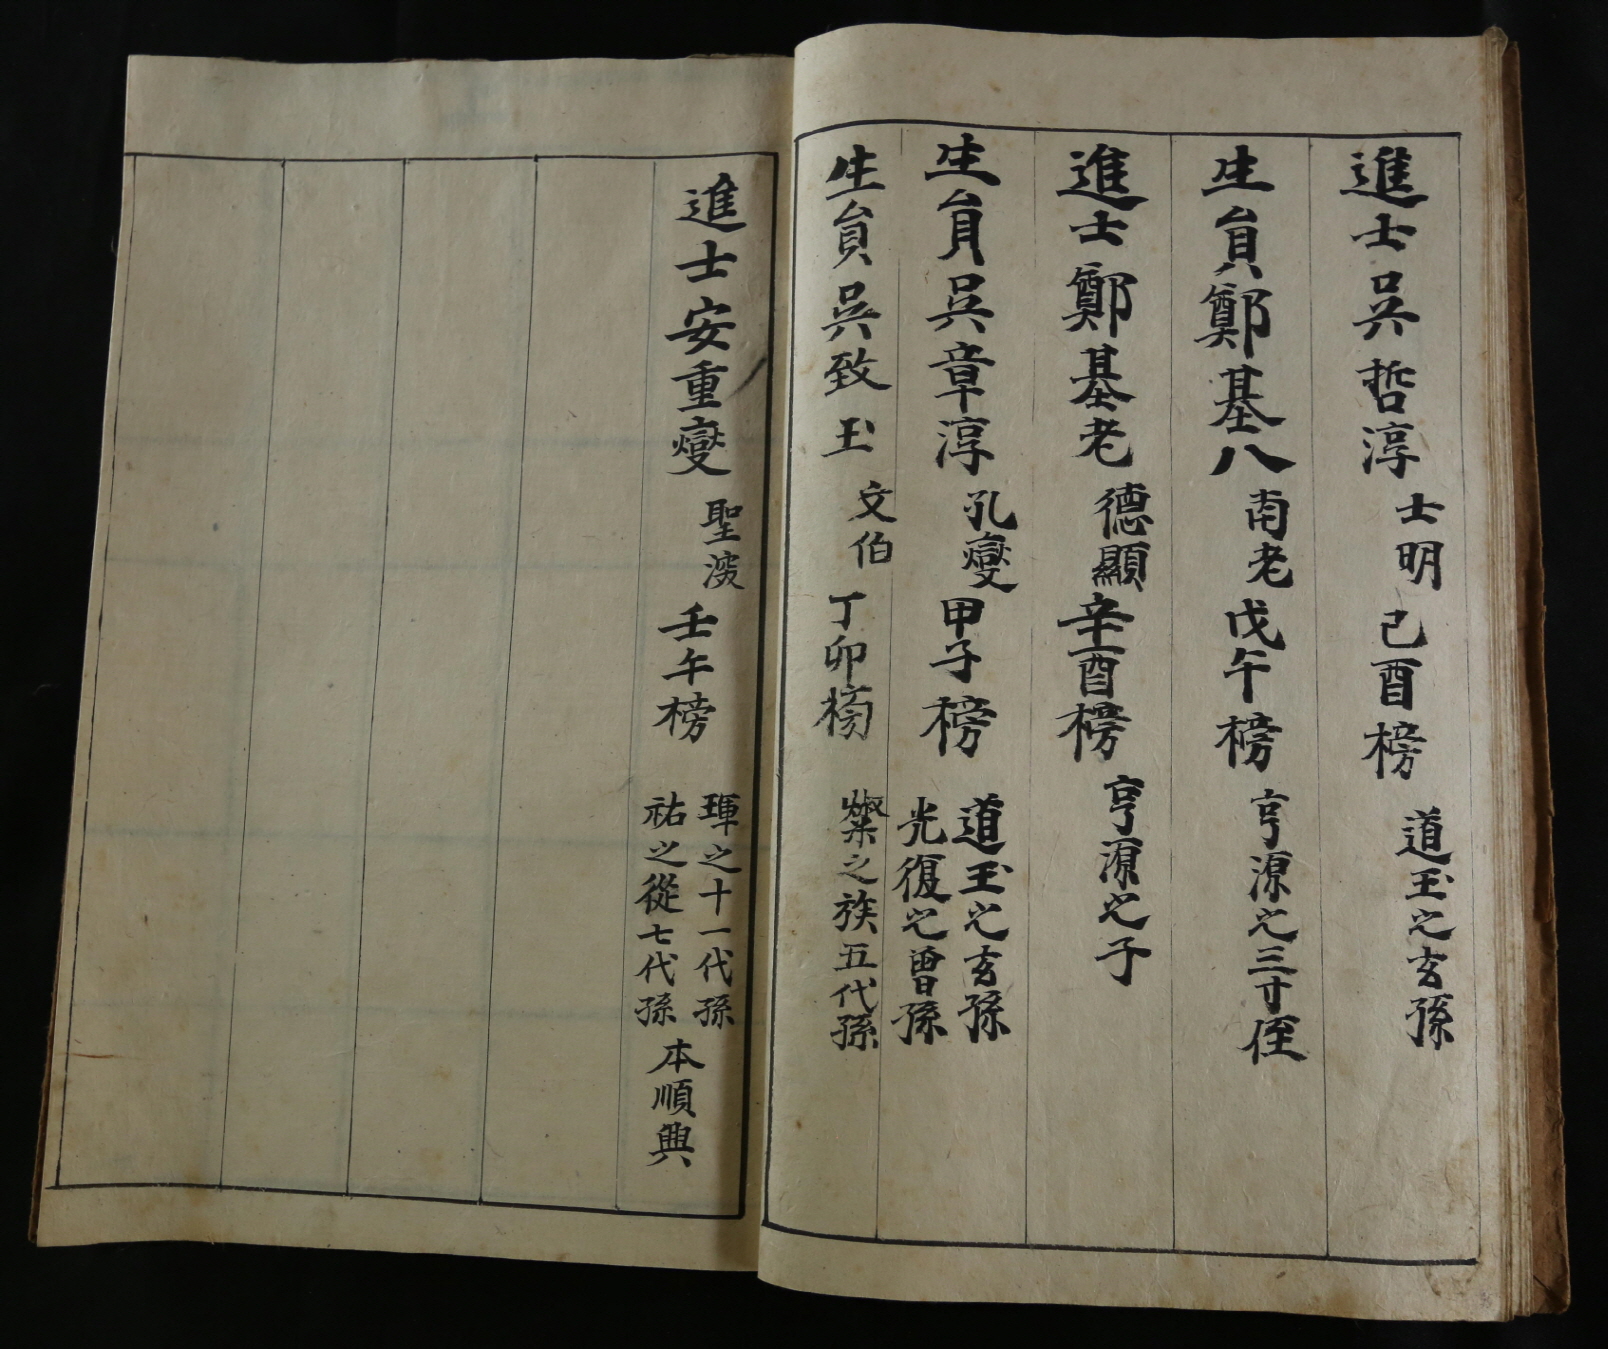 進士吳哲淳 士明 己酉榜 道玉之玄孫
生員鄭基八 南老 戊午榜 亨源之三寸侄
進士鄭基老 德顯 辛酉榜 亨源之子
生員吳章淳 孔燮 甲子榜 道玉之玄孫
光復之曾孫
生員吳致玉 文伯 丁卯榜 之族五代孫
進士安重燮 聖 壬午榜 琿之十一代孫
祐之從七代孫 本順興